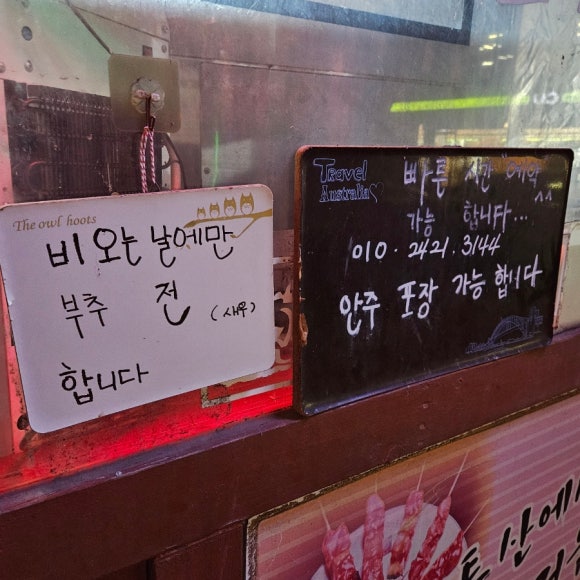 The owl hoots
비 오는 날에만
부추 전
(새우)
합니다
Travel
Australia
빠른 시간 "예약
가능 합니다... ^^
010.2421.3144
안주 포장 가능합니다
산에서